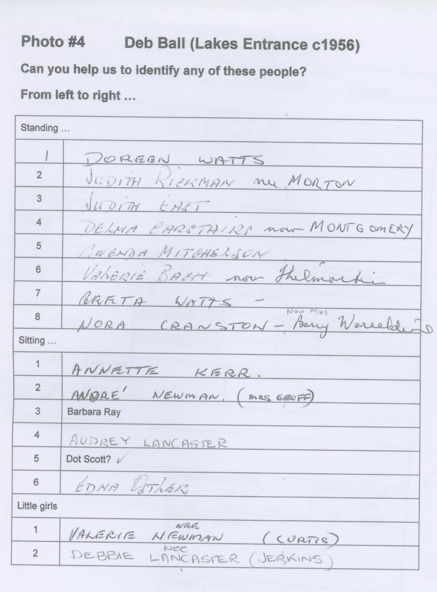 Photo #4 Deb Ball (Lakes Entrance c1956)
Can you help us to identify any of these people?
From left to right ...
Standing ...
1 DOREEN WATTS
2 JUDITH RICKMAN nee MORTON
3 JUDITH EAST
4 DELMA CARSTAIRS now MONTGOMERY
5 GWENDA MITCHELSON
6 VALERIE BACH now
7 GRETA WATTS -
Now Mrs
8 NORA CRANSTON - Barry
Sitting ...
1 ANNETTE KERR.
2 ANDRE' NEWMAN. (MRS GEOFF)
3 Barbara Ray
4 AUDREY LANCASTER
5 Dot Scott? ✓
6 EDNA OSTLER
Little girls
1 VALERIE NEWMAN (CURTIS)
NEE
2 DEBBIE LANCASTER (JERKINS)